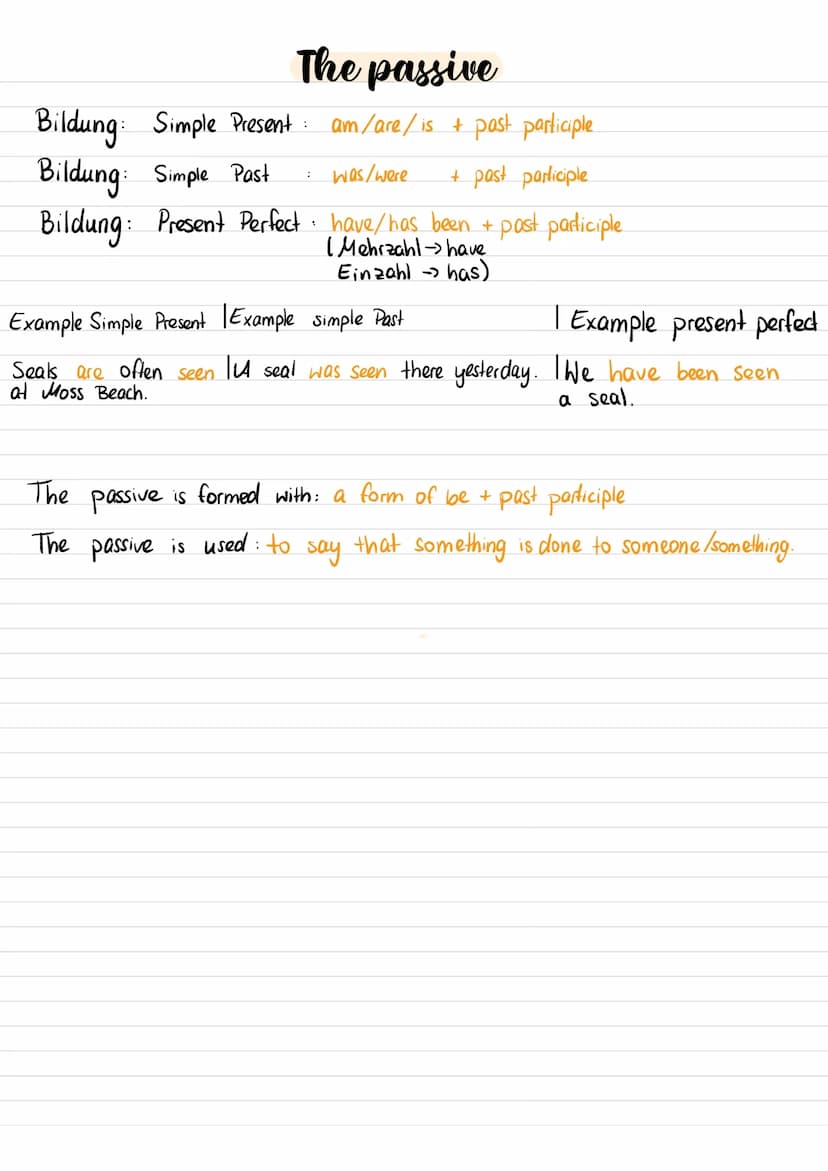 The passive
Bildung: Simple Present : am/are/is + past participle
Bildung: Simple Past : was/were + past participle
Bildung: Present Perfect : have/has been + past participle
(Mehrzahl → have
Einzahl → has)
Example Simple Present | Example simple Past | Example present perfect
Seals are often seen | A seal was seen there yesterday. | We have been seen
at Moss Beach. a seal.
The passive is formed with: a form of be + past participle
The passive is used : to say that something is done to someone/something.